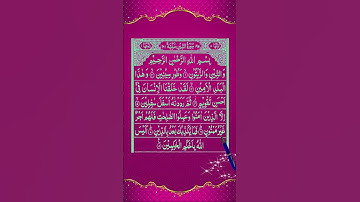 سُوْرَةُ التِّيْنِ مَكِّيَّةٌ
بِسْمِ اللّٰهِ الرَّحْمٰنِ الرَّحِيْمِ
وَالتِّيْنِ وَالزَّيْتُوْنِ ۙ وَطُوْرِ سِيْنِيْنَ ۙ وَهٰذَا
الْبَلَدِ الْاَمِيْنِ ۙ لَقَدْ خَلَقْنَا الْاِنْسَانَ فِيْٓ
اَحْسَنِ تَقْوِيْمٍ ۙ ثُمَّ رَدَدْنٰهُ اَسْفَلَ سٰفِلِيْنَ ۙ
اِلَّا الَّذِيْنَ اٰمَنُوْا وَعَمِلُوا الصّٰلِحٰتِ فَلَهُمْ اَجْرٌ
غَيْرُ مَمْنُوْنٍ ۙ فَمَا يُكَذِّبُكَ بَعْدُ بِالدِّيْنِ ۙ اَلَيْسَ
اللّٰهُ بِاَحْكَمِ الْحٰكِمِيْنَ